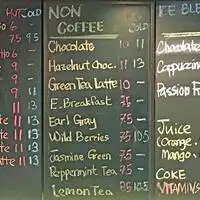 HOT COLD
6
7.5 9.5
6
9
9
9
11
11 13
11 13
latte 11 13
NON
COFFEE HOT COLD
Chocolate 10 11
Hazelnut Choc. 11 13
Green Tea Latte 10
E. Breakfast 7.5 -
Earl Gray 7.5 -
Wild Berries 7.5 10.5
Jasmine Green 7.5 -
Peppermint Tea 7.5 -
Lemon Tea 8.5 10.5
ICE BLE
Chocolate
Cappuccino
Passion F
Juice
(Orange.
Mango.
COKE
VITAMINS